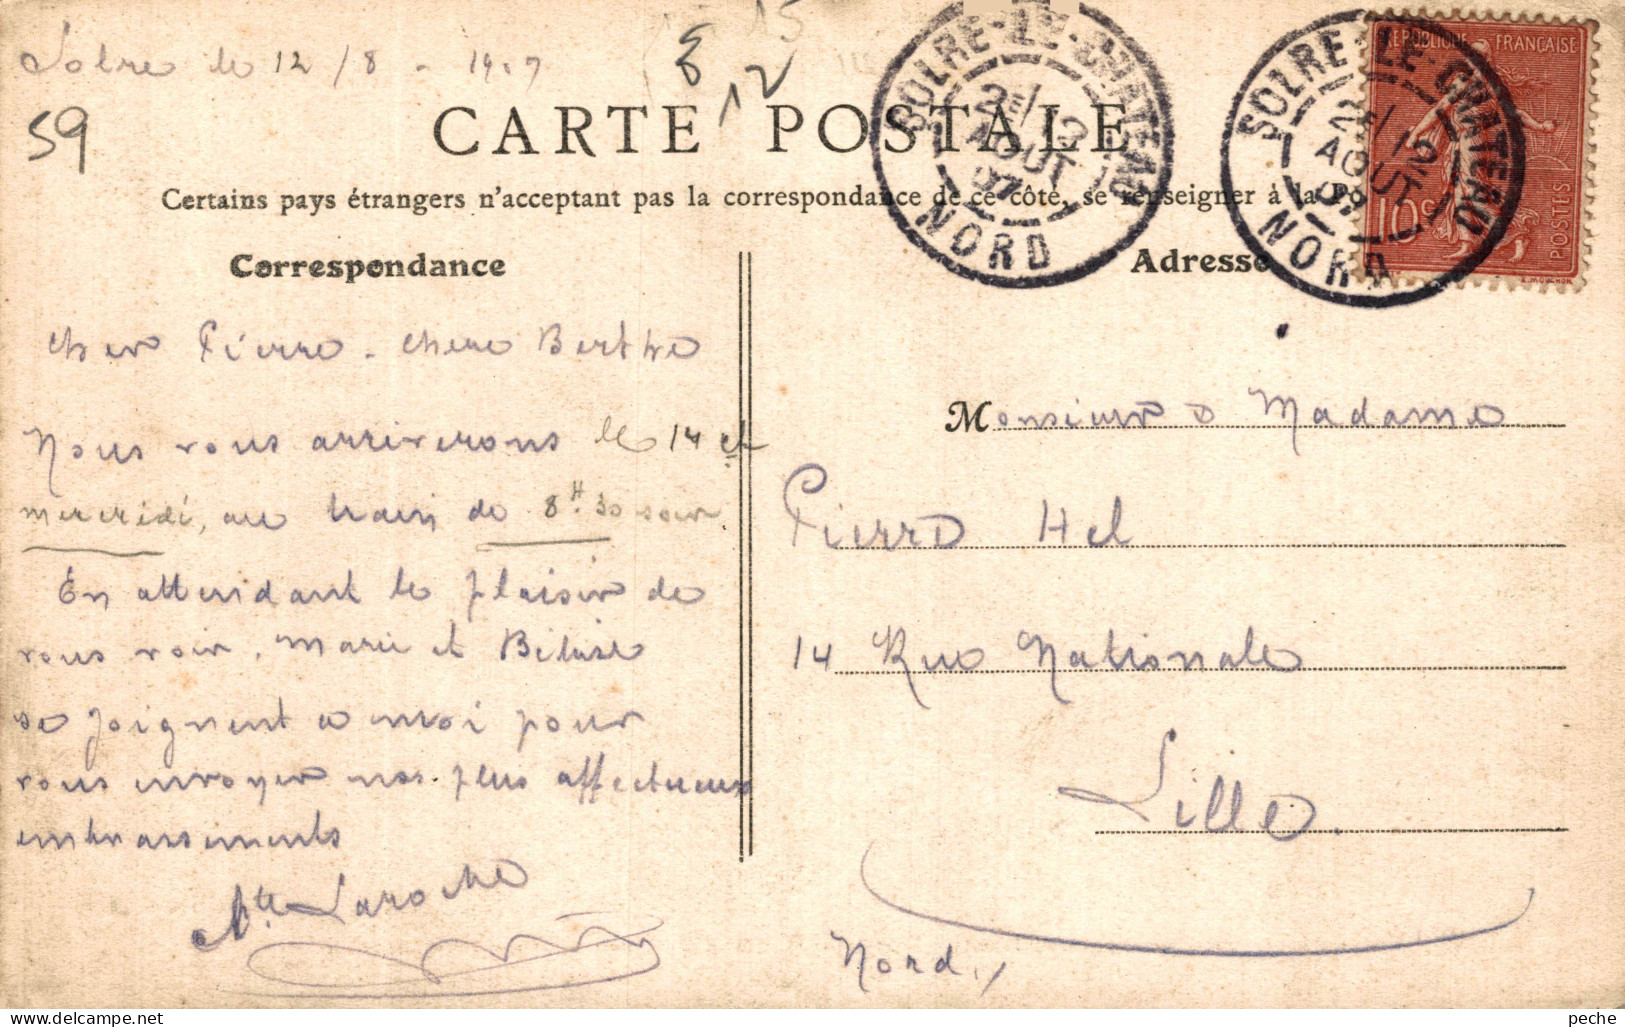 Solre le 12/8 - 1907
59
8
12
15
CARTE POSTALE
Certains pays étrangers n'acceptant pas la correspondance de ce côté, se renseigner à la Po
Correspondance
Adresse
SOLRE-LE-CHATEAU
2E/12
AOUT
07
NORD
SOLRE-LE-CHATEAU
2E/12
AOUT
07
NORD
RÉPUBLIQUE FRANÇAISE
10c
POSTES
Cher Pierre - chere Berthe
Nous vous arriverons le 14 ct
mercredi, au train de 8H.30 soir
En attendant le plaisir de
vous voir, Marie et
se joignent a moi pour
vous envoyer nos plus affectueux
embrassements
Laroche
Monsieur & Madame
Pierre Hel
14 Rue Nationale
Lille
Nord
peche